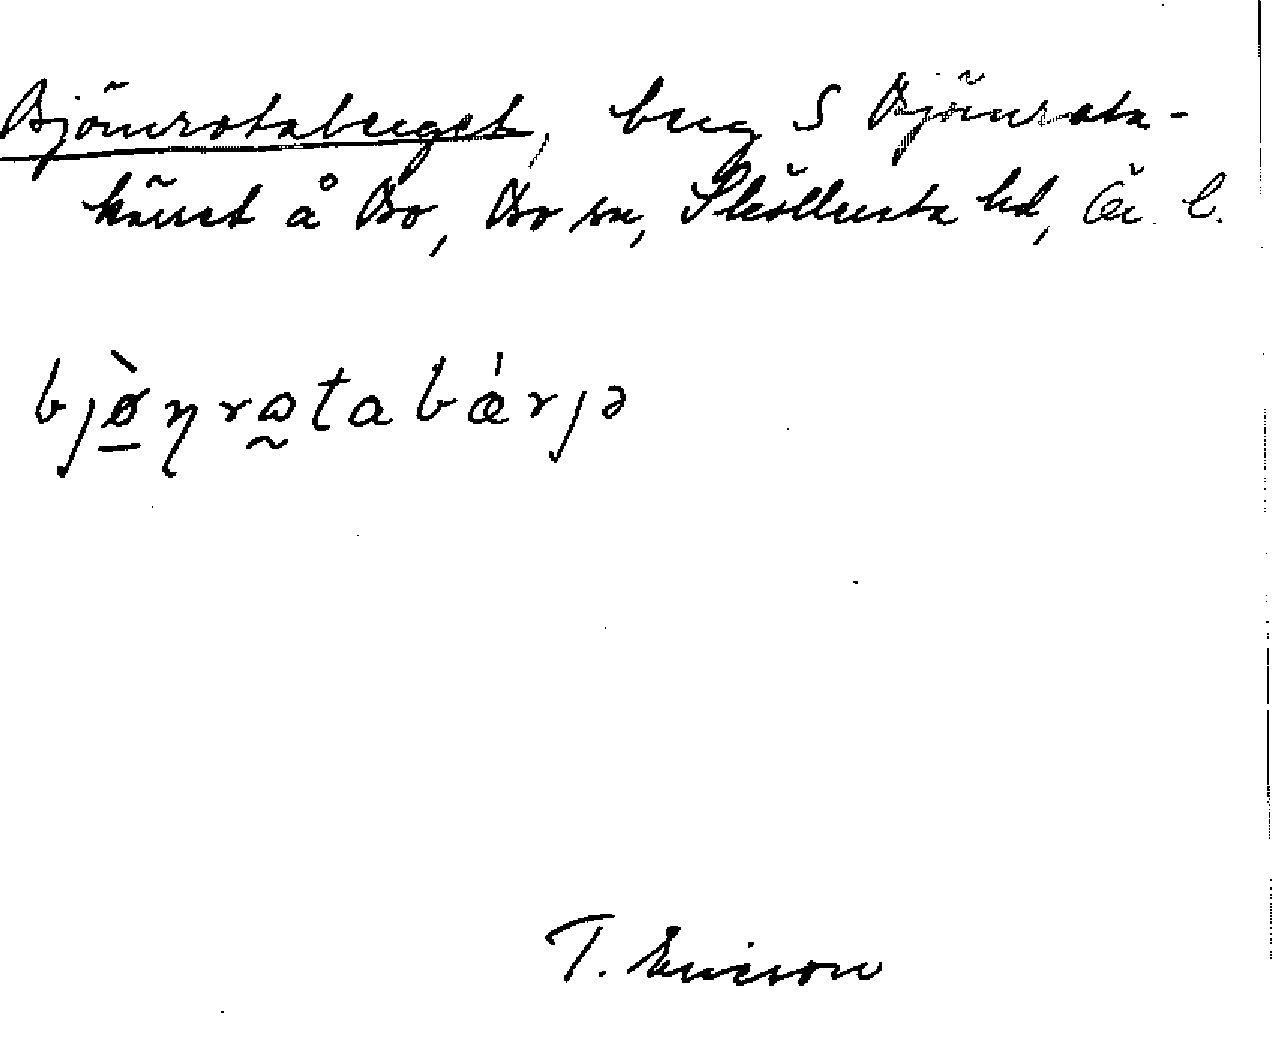 Björnrotaberget, berg S Björnrota-
kärret å Bo, Bo sn, Sköllersta hd, Ör l.
bjø̱̀ηrɷ̰tabǽrjə
T. Ericson